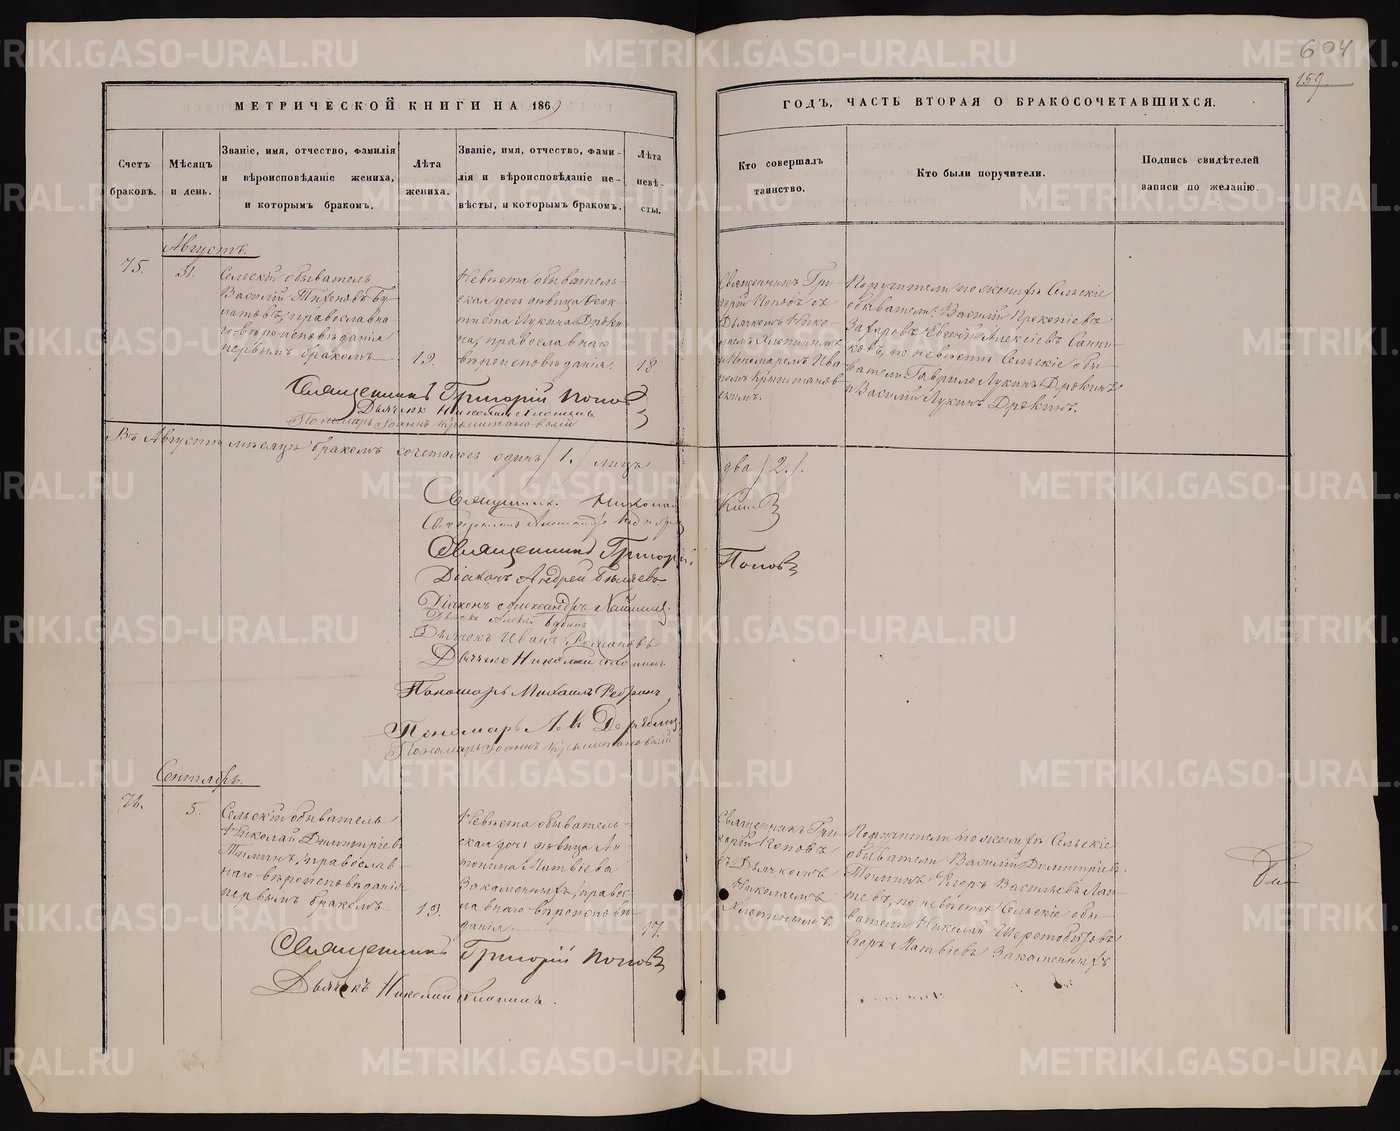 604
159
МЕТРИЧЕСКОЙ КНИГИ НА 1869
ГОДЪ, ЧАСТЬ ВТОРАЯ О БРАКОСОЧЕТАВШИХСЯ.
Счетъ браковъ.
Мѣсяцъ и день.
Званіе, имя, отчество, фамилія
и вѣроисповѣданіе жениха,
и которымъ бракомъ.
Лѣта
жениха.
Званіе, имя, отчество, фами-
лія и вѣроисповѣданіе не-
вѣсты, и которымъ бракомъ.
Лѣта
невѣ-
сты.
Кто совершалъ
таинство.
Кто были поручители.
Подпись свидѣтелей
записи по желанію.
Августъ.
75.
31.
Сельскій обыватель
Василій Тихоновъ Бу-
латовъ, православна-
го вѣроисповѣданія
первымъ бракомъ
19.
Невѣста обыватель-
ская дочь дѣвица Ѳеок-
тиста Лукина Дреки-
на, православнаго
вѣроисповѣданія.
18.
Священникъ Гри-
горій Поповъ съ
Дьячкомъ Нико-
лаемъ Хлопинымъ
и Пономаремъ Ива-
номъ
Поручители по женихѣ Сельскіе
обыватели: Василій Прокопіевъ
Захаровъ, Евгеній Алексіевъ Санни-
ковъ, по невѣстѣ: Сельскіе обы-
ватели Гаврило Лукинъ Дрекинъ
и Василій Лукинъ Дрекинъ.
Священникъ Григорій Поповъ
Дьячекъ Николай Хлопинъ
Пономарь Іоаннъ
Въ Августѣ мѣсяцѣ бракомъ сочетался одинъ /1./ лицъ
два /2./.
Священникъ Николай
Священникъ Александръ
Священникъ Григорій
Поповъ
Діаконъ Андрей Бѣляевъ
Діаконъ Александръ
Дьячекъ Алексѣй
Дьячекъ Иванъ Романовъ
Дьячекъ Николай Хлопинъ
Пономарь Михаилъ
Пономарь
Пономарь Іоаннъ
Сентябрь.
76.
5.
Сельскій обыватель
Николай Димитріевъ
Томинъ, православ-
наго вѣроисповѣданія
первымъ бракомъ
19.
Невѣста обыватель-
ская дочь дѣвица Ан-
тонина Матвѣева
Закаменныхъ, право-
славнаго вѣроисповѣ-
данія.
17.
Священникъ Гри-
горій Поповъ
съ Дьячкомъ
Николаемъ
Хлопинымъ.
Поручители по женихѣ Сельскіе
обыватели Василій Димитріевъ
Томинъ, Егоръ Васильевъ Лап-
тевъ, по невѣстѣ Сельскіе обы-
ватели Николай Шерстобитовъ
Егоръ Матвѣевъ Закаменныхъ
Священникъ Григорій Поповъ
Дьячекъ Николай Хлопинъ.
METRIKI.GASO-URAL.RU